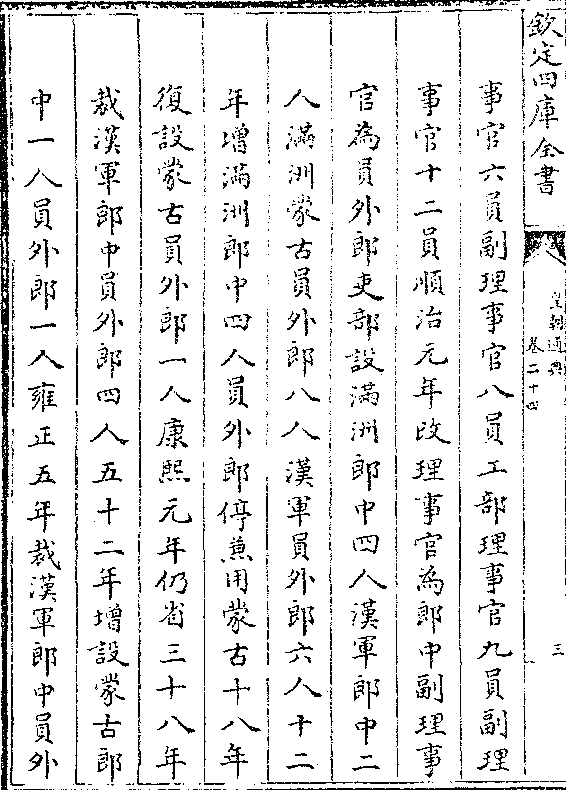 欽定四庫全書
皇朝通典
卷二十四
三
事官六員副理事官八員工部理事官九員副理
事官十二員順治元年改理事官為郎中副理事
官為員外郎吏部設滿洲郎中四人漢軍郎中二
人滿洲蒙古員外郎八人漢軍員外郎六人十二
年增滿洲郎中四人員外郎停兼用蒙古十八年
復設蒙古員外郎一人康熙元年仍省三十八年
裁漢軍郎中員外郎四人五十二年增設蒙古郎
中一人員外郎一人雍正五年裁漢軍郎中員外